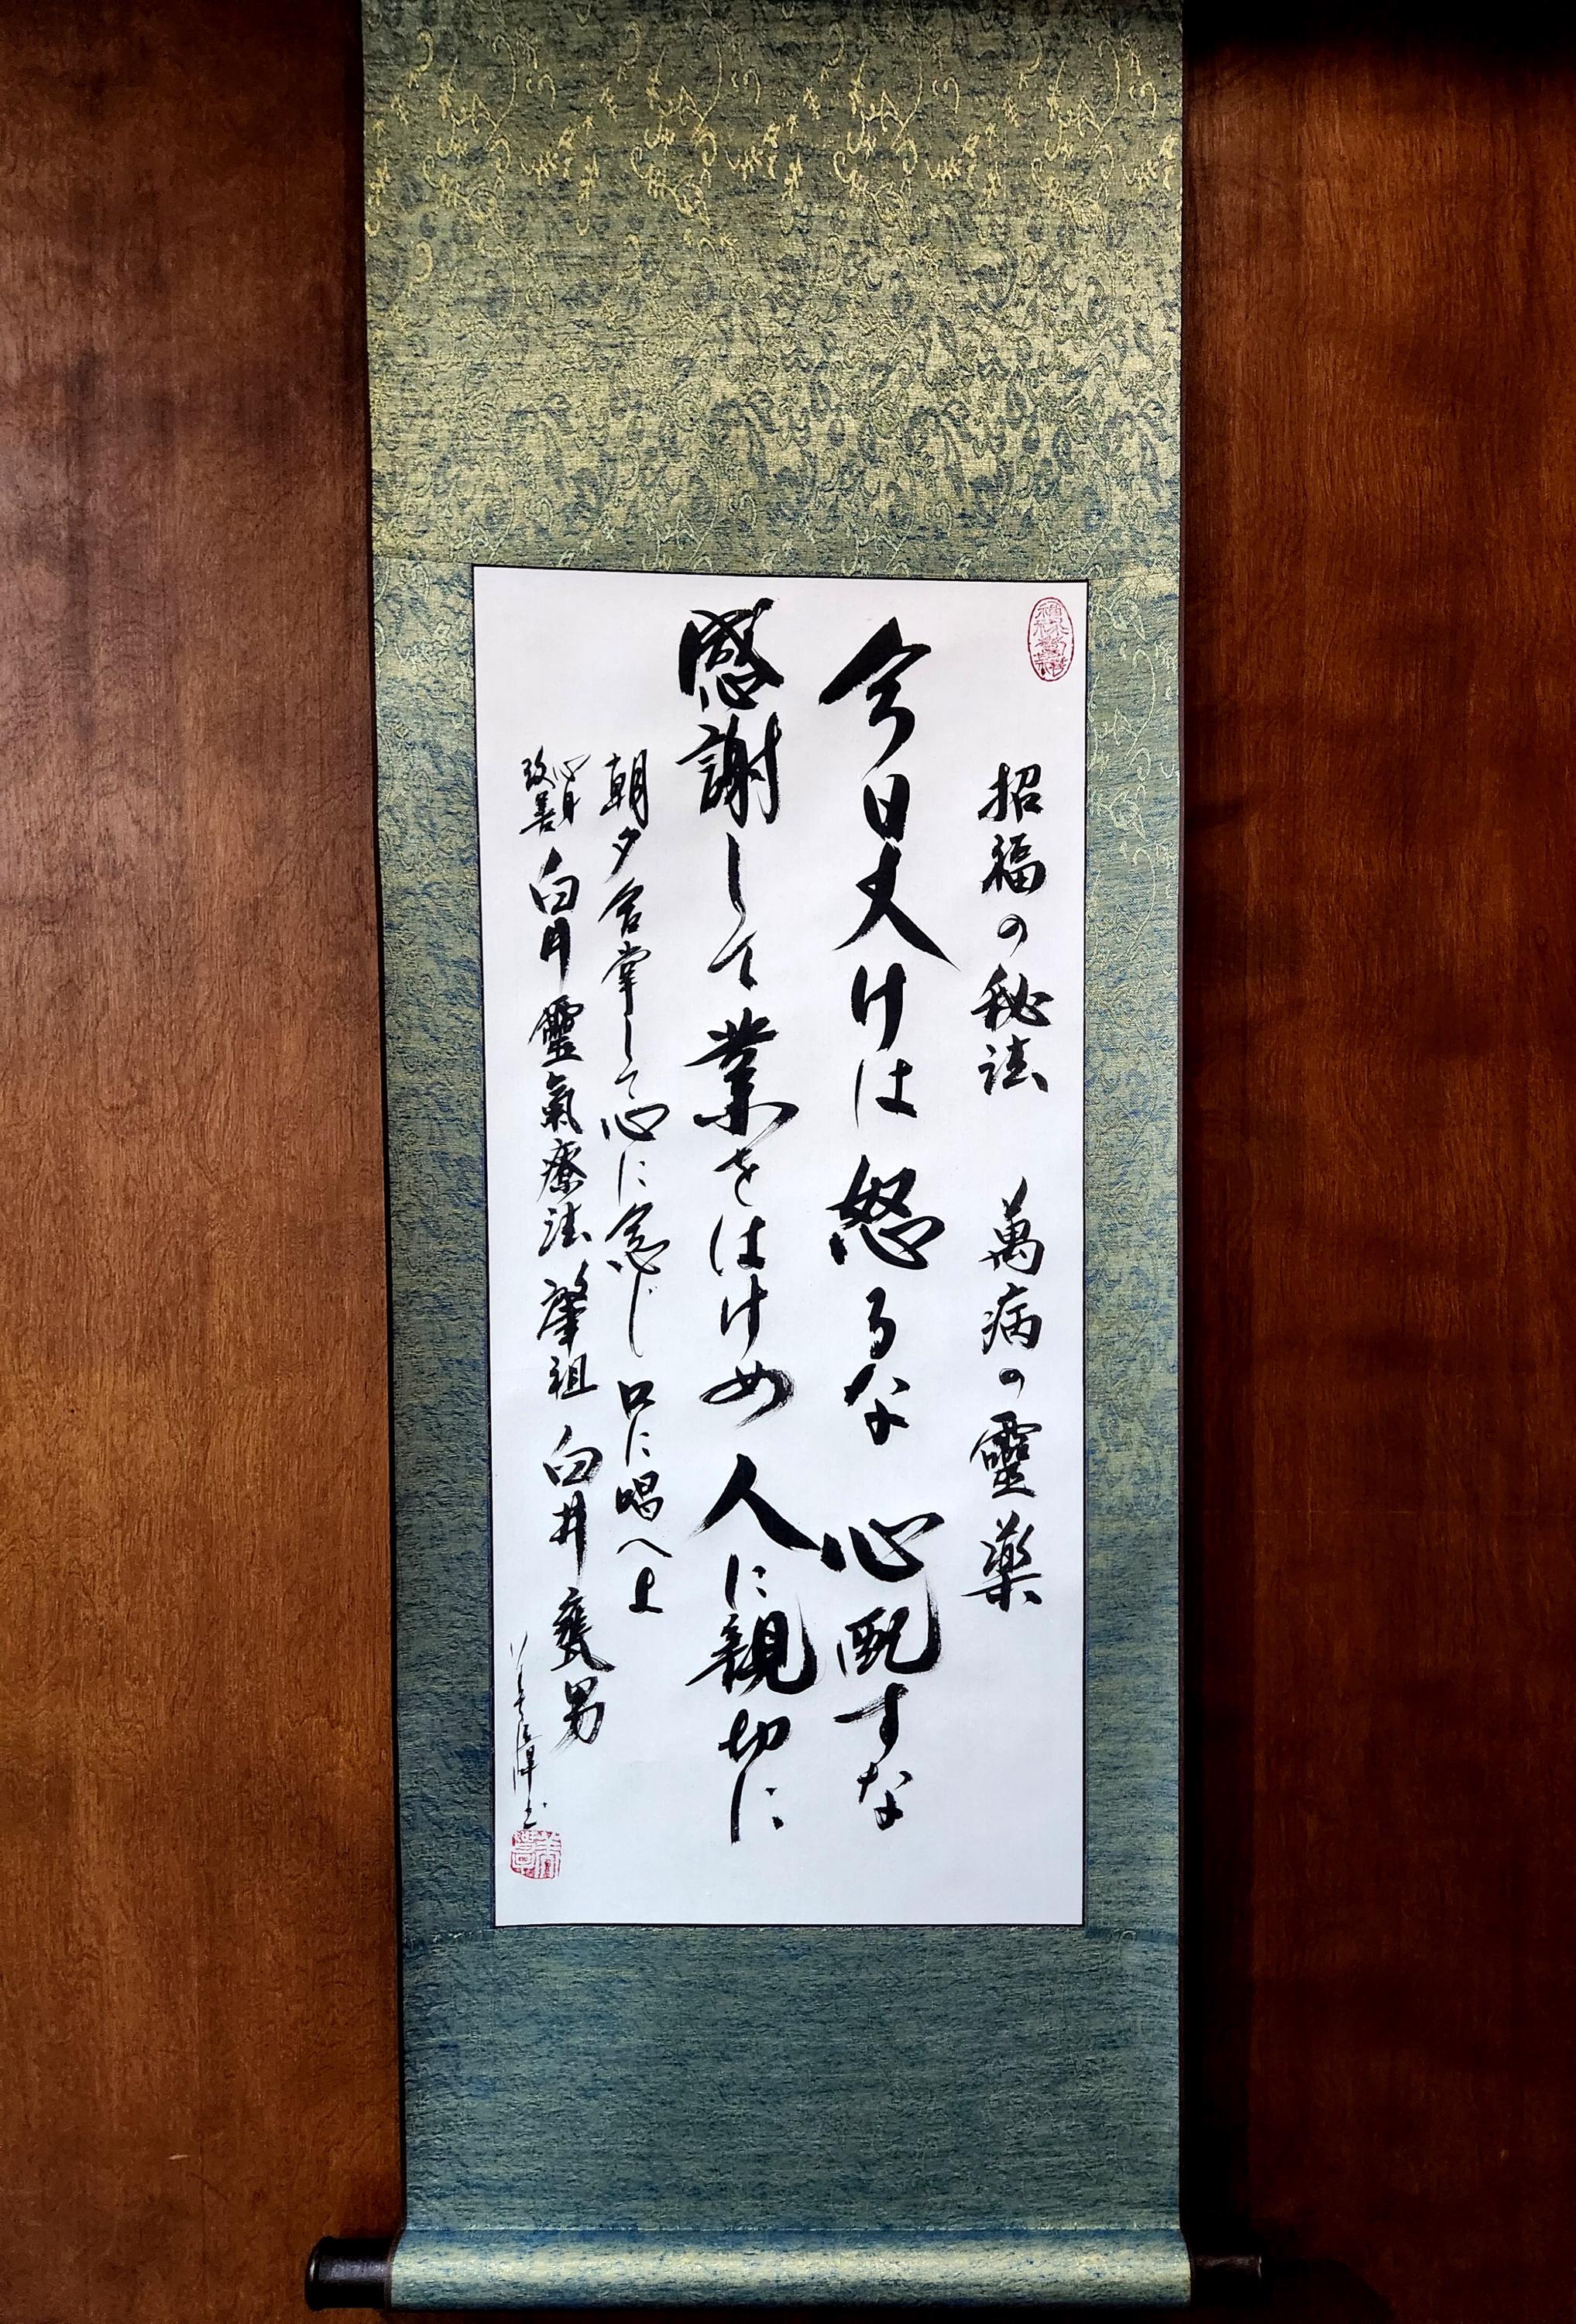 招福の秘法 萬病の靈薬
今日丈けは 怒るな 心配すな
感謝して 業をはけめ 人に親切に
朝夕合掌して心に念じ 口に唱へよ
心身改善 臼井靈氣療法 肇祖 臼井甕男